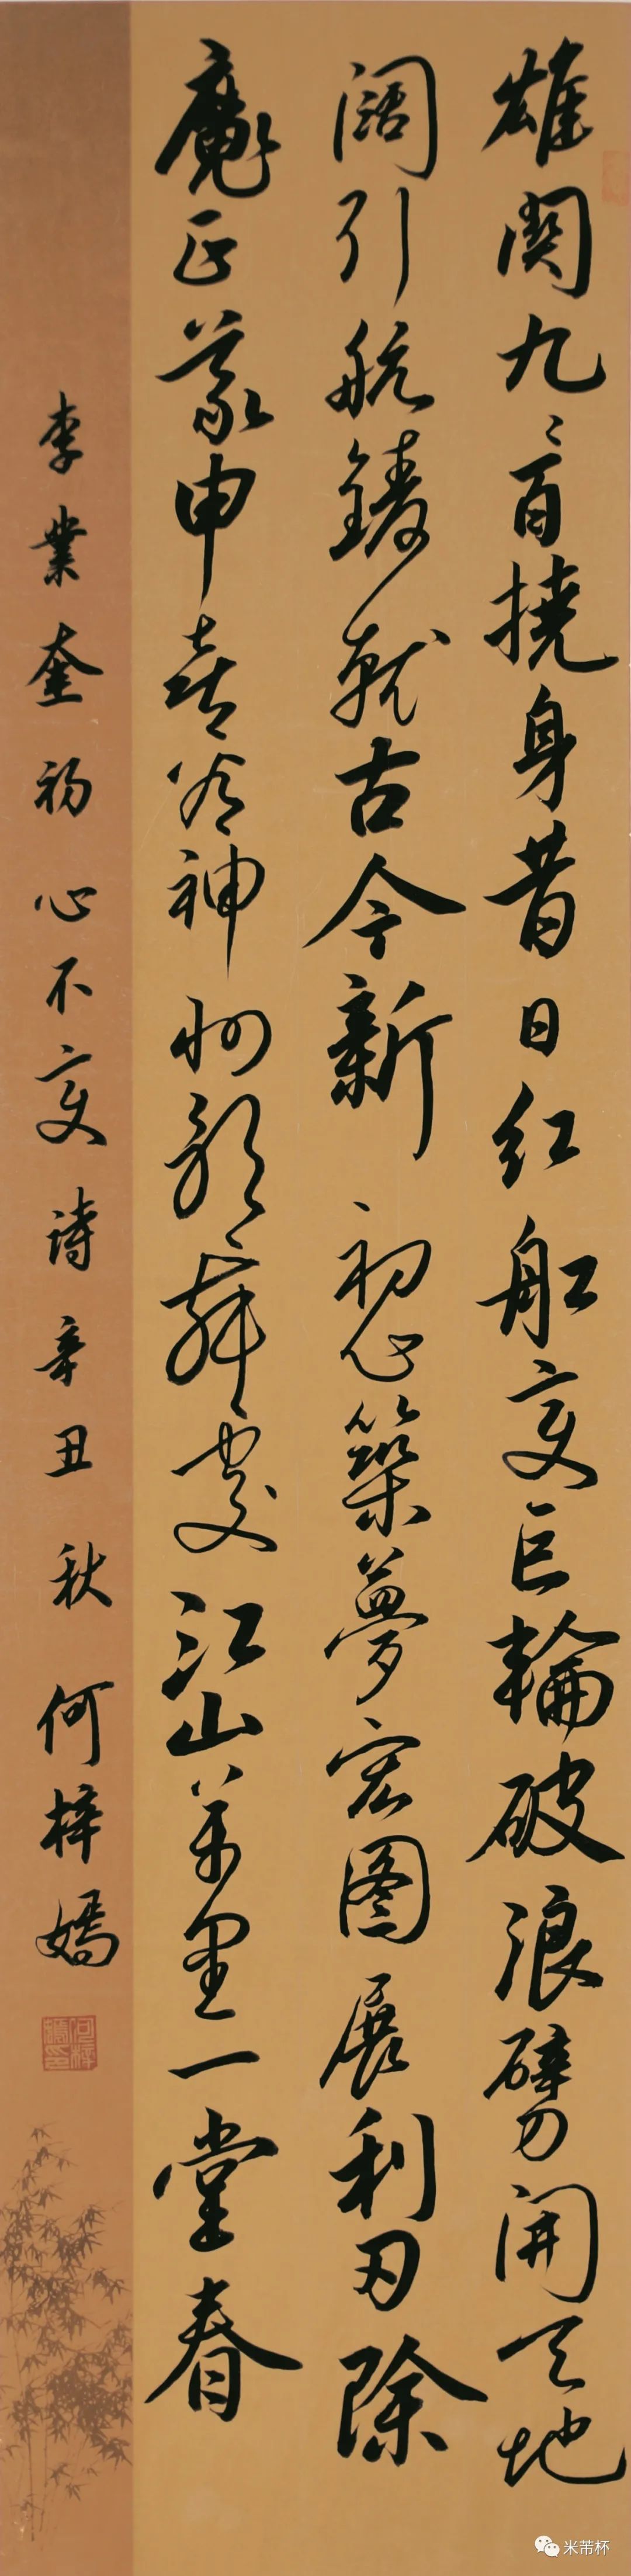 雄关九九百挠身昔日红船变巨轮破浪劈开天地
阔引航铸就古今新初心筑梦宏图展利刃除
魔正义申喜看神州歌舞处江山万里一堂春
李业奎初心不变诗辛丑秋何梓嫣
何梓嫣印
米芾杯